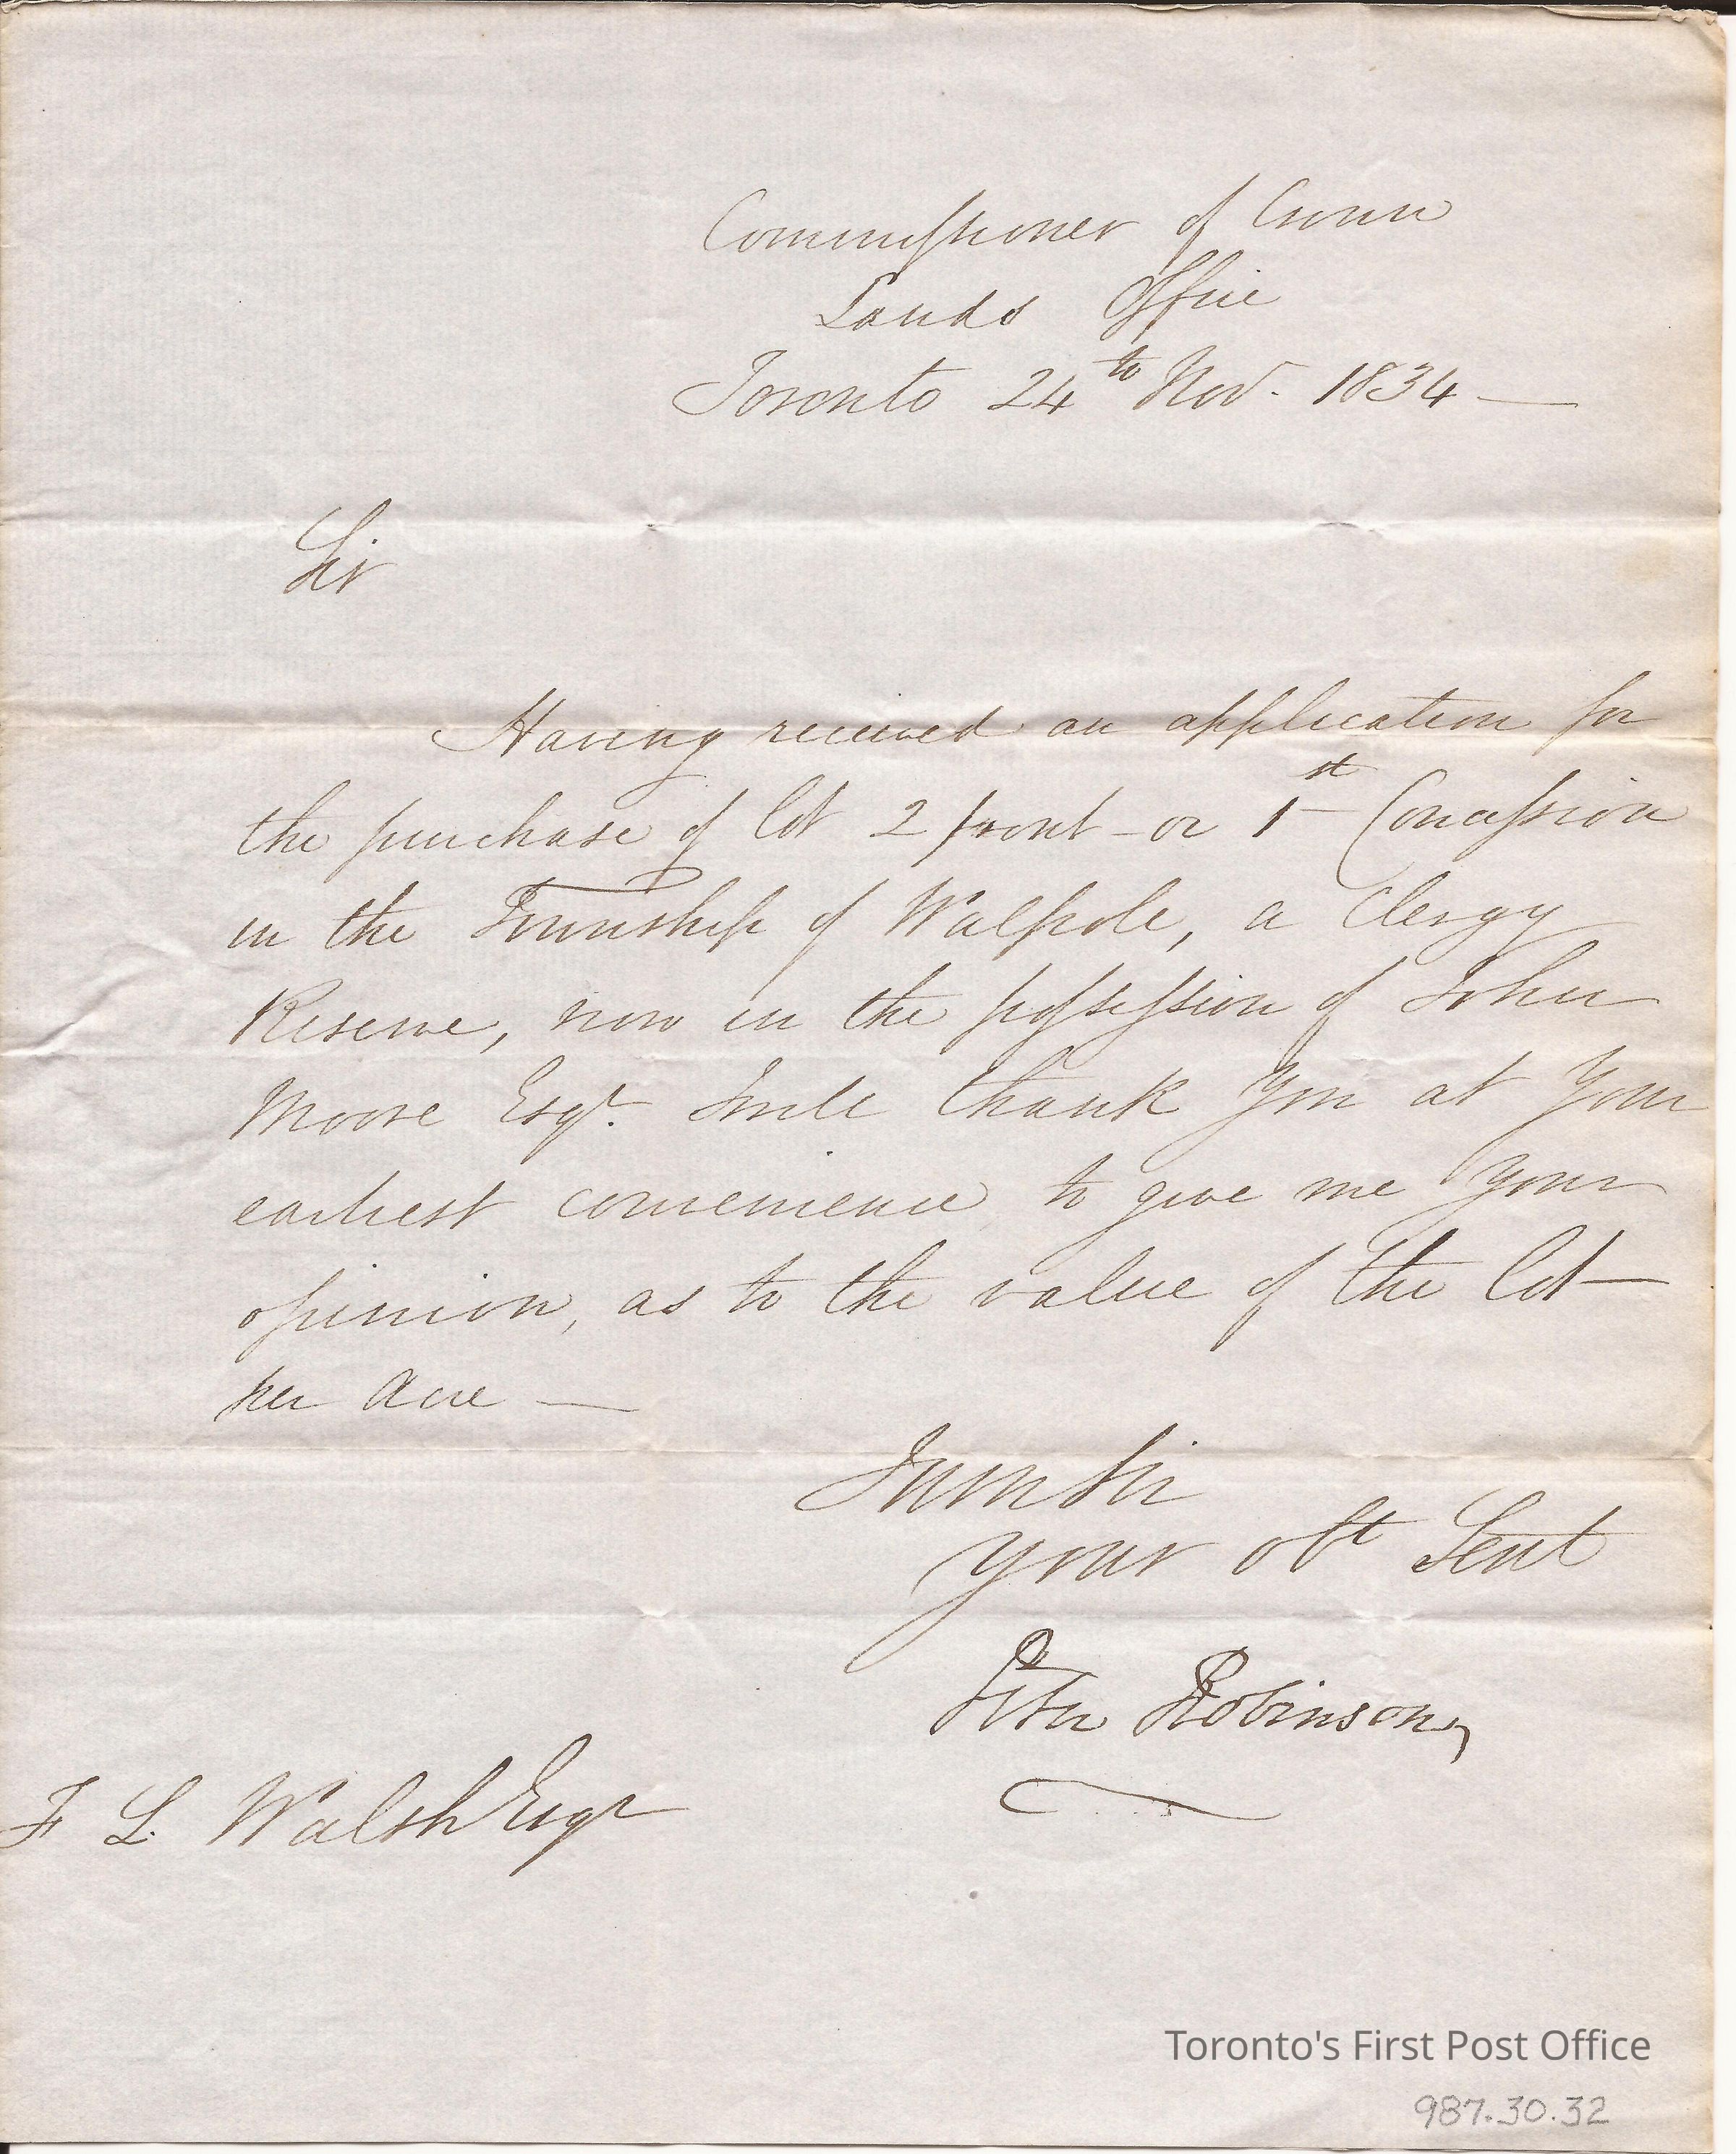 Commissioner of Crown
Lands Office
Toronto 24th Nov. 1834 —
Sir
Having received an application for
the purchase of lot 2 front - or 1st Concession
in the Township of Walpole, a Clergy
Reserve, now in the possession of John
Moore Esqr. I will thank you at your
earliest convenience to give me your
opinion, as to the value of the lot —
per Acre —
I am Sir
your obt Servt
Peter Robinson,
F L. Walsh Esqr
Toronto's First Post Office
987.30.32